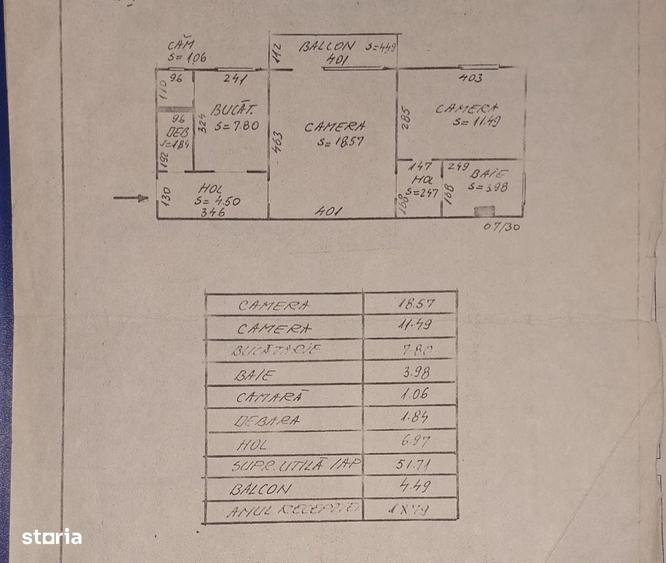 CĂM
S=1.06
96
241
BALCON S=4.49
401
112
403
110
96
DEB
S=1.84
192
324
BUCĂT.
S=7.80
463
CAMERA
S=18.57
285
CAMERA
S=11.49
130
HOL
S=4.50
346
401
147
HOL
S=2.47
168
249
168
BAIE
S=3.98
07/30
CAMERA 18.57
CAMERA 11.49
BUCĂTĂRIE 7.80
BAIE 3.98
CAMARĂ 1.06
DEBARA 1.84
HOL 6.97
SUPR. UTILĂ /AP 51.71
BALCON 4.49
ANUL RECEPȚIEI
storia